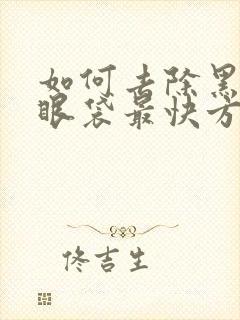 如何去除黑
眼袋最快方
佟吉生